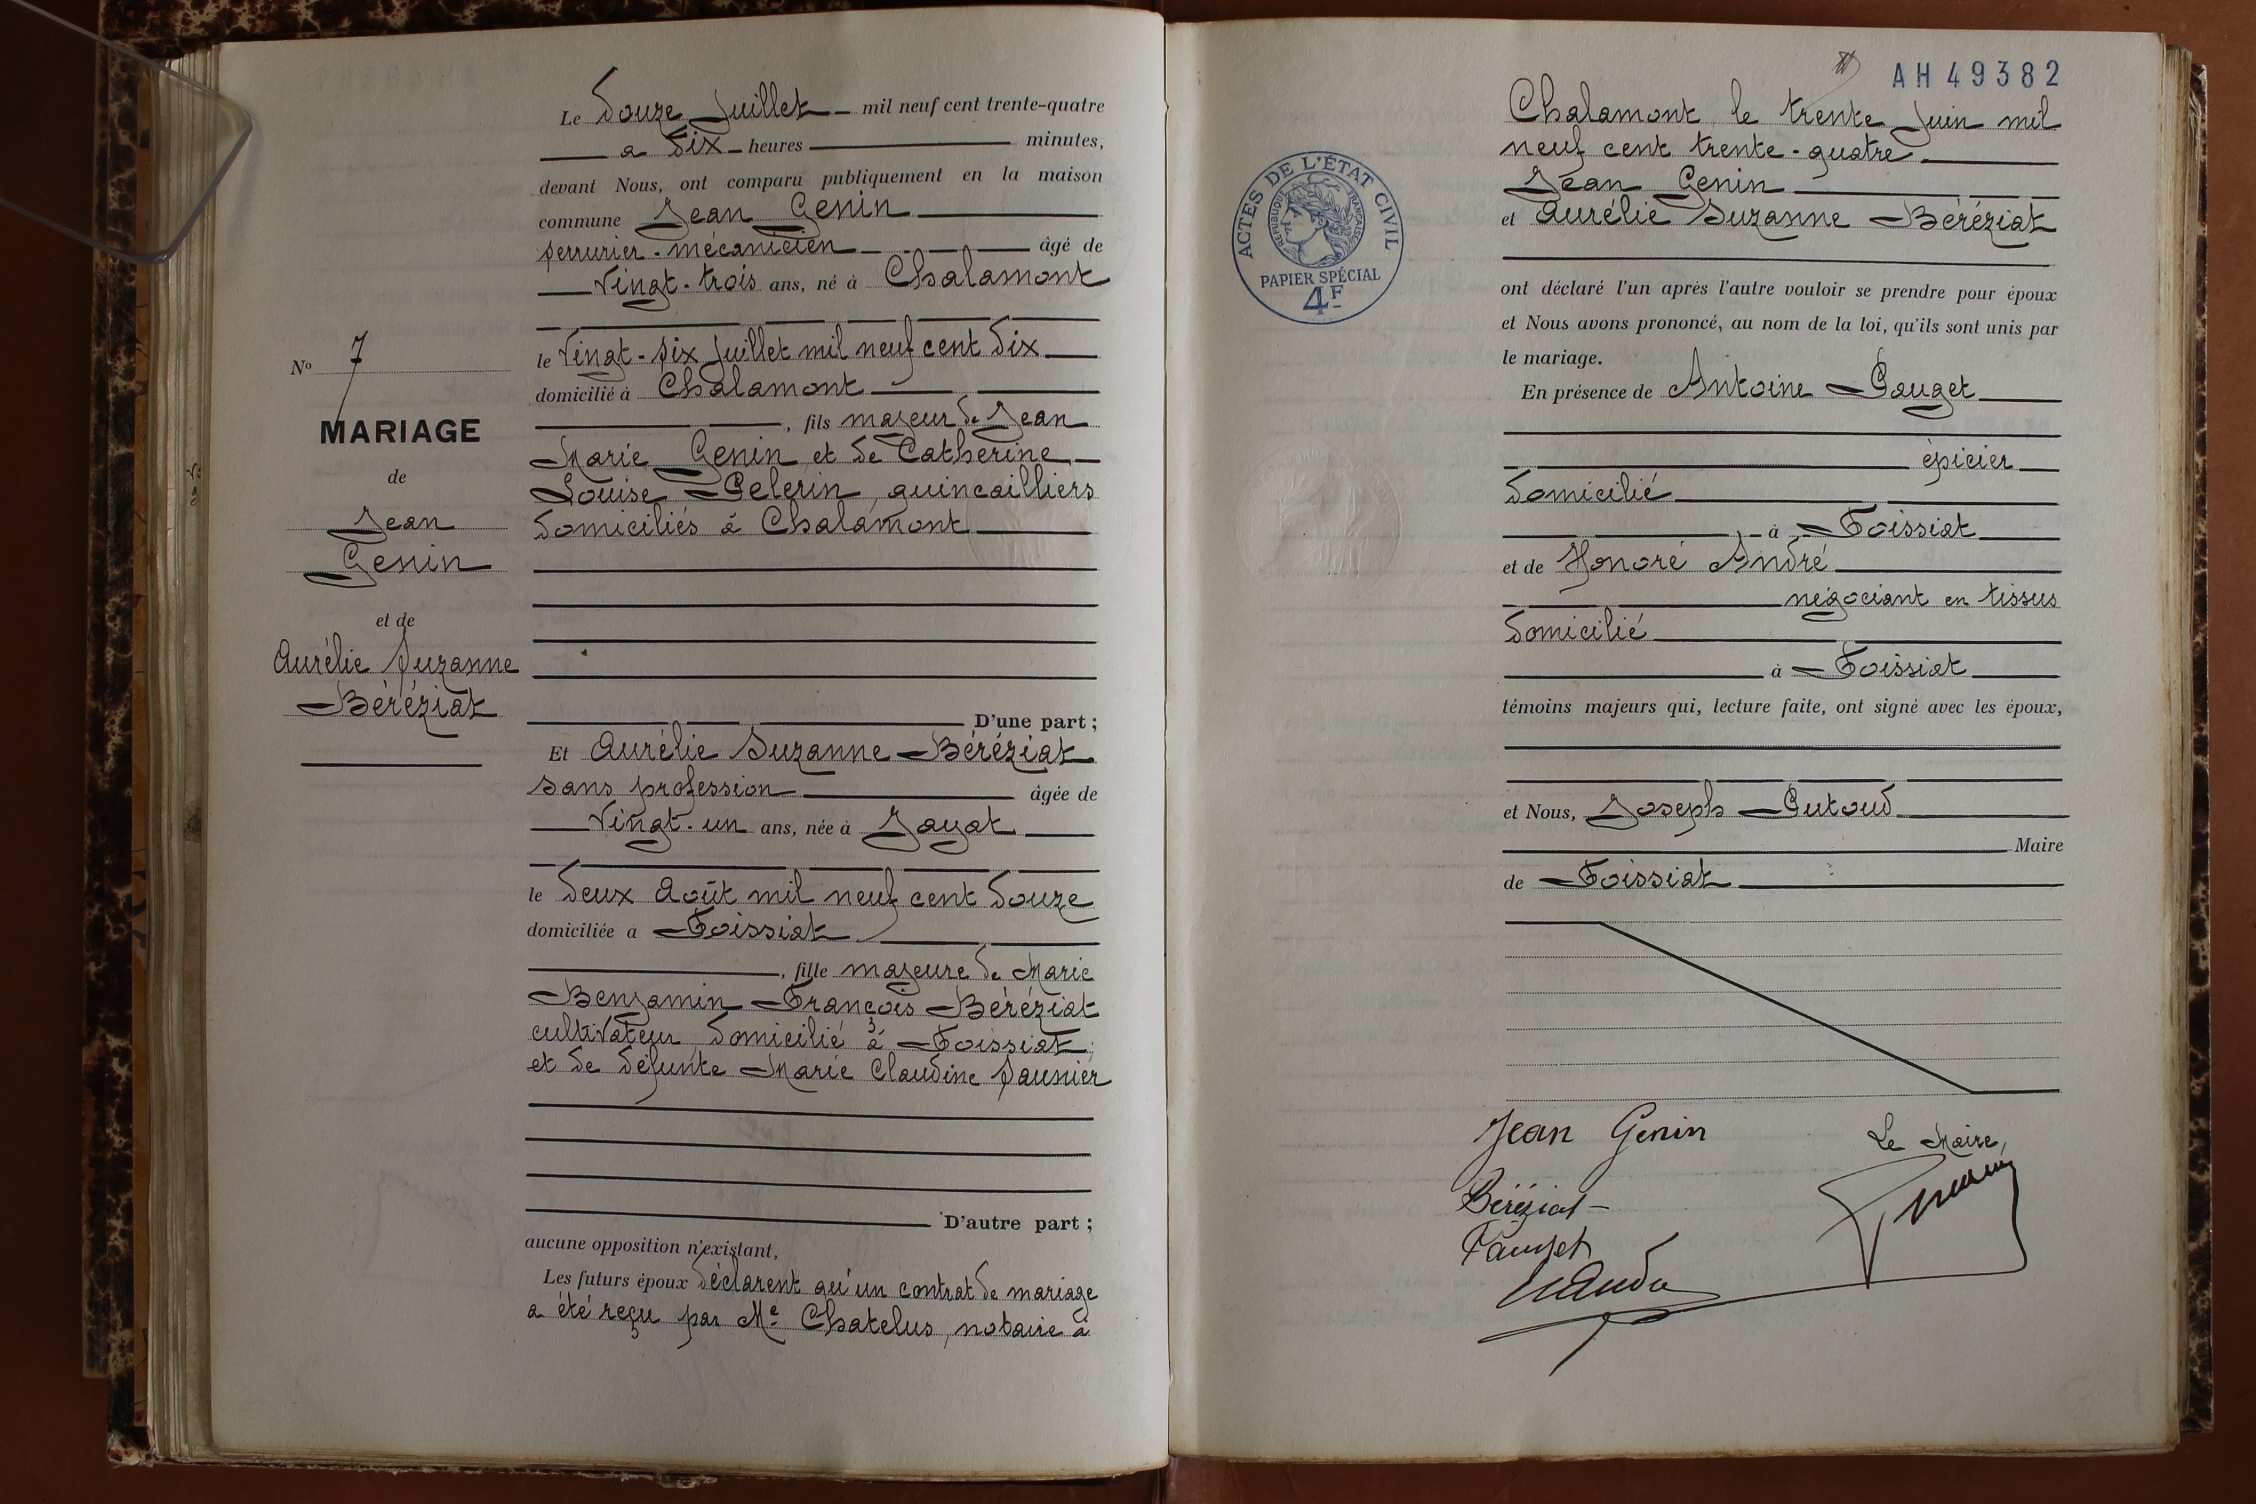 Le Douze Juillet mil neuf cent trente-quatre
a Dix heures minutes,
devant Nous, ont comparu publiquement en la maison
commune Jean Genin
serrurier-mécanicien âgé de
vingt-trois ans, né à Chalamont
le vingt-six Juillet mil neuf cent Dix
domicilié à Chalamont
, fils majeur de Jean
Marie Genin et de Catherine
Louise Pelerin, quincailliers
domiciliés à Chalamont
No 7
MARIAGE
de
Jean
Genin
et de
Aurélie Suzanne
Béréziat
D'une part;
Et Aurélie Suzanne Béréziat
sans profession âgée de
vingt-un ans, née à Jayat
le deux Août mil neuf cent douze
domiciliée à Foissiat
, fille majeure de Marie
Benjamin François Béréziat
cultivateur, domicilié à Foissiat;
et de défunte Marie Claudine Saunier
D'autre part;
aucune opposition n'existant,
Les futurs époux déclarent qu'un contrat de mariage
a été reçu par Me Chatelus, notaire à
AH 49382
Chalamont, le trente Juin mil
neuf cent trente-quatre
Jean Genin
et Aurélie Suzanne Béréziat
ACTES DE L'ÉTAT CIVIL
RÉPUBLIQUE FRANÇAISE
PAPIER SPÉCIAL
4F
ont déclaré l'un après l'autre vouloir se prendre pour époux
et Nous avons prononcé, au nom de la loi, qu'ils sont unis par
le mariage.
En présence de Antoine Pauget
épicier
domicilié
à Foissiat
et de Honoré André
négociant en tissus
domicilié
à Foissiat
témoins majeurs qui, lecture faite, ont signé avec les époux,
et Nous, Joseph Putoud
Maire
de Foissiat
Jean Genin
Le Maire,
Béréziat
Pauget